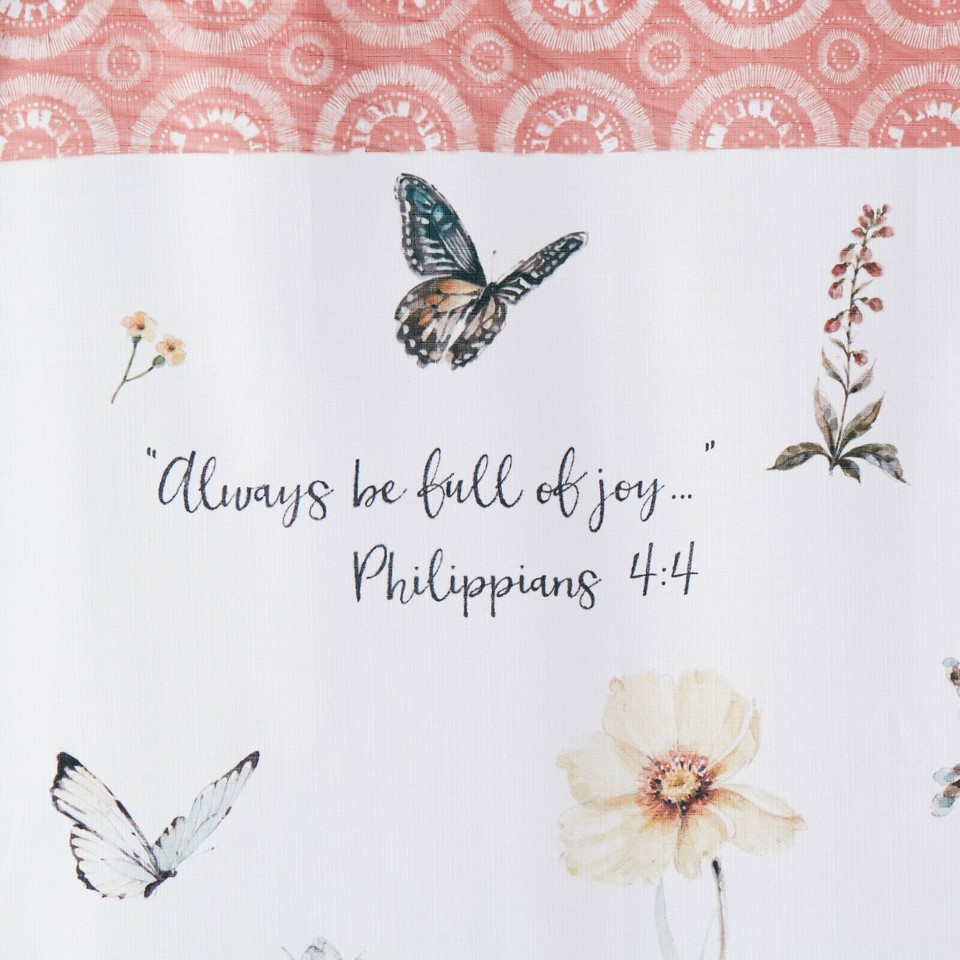 "Always be full of joy..."
Philippians 4:4